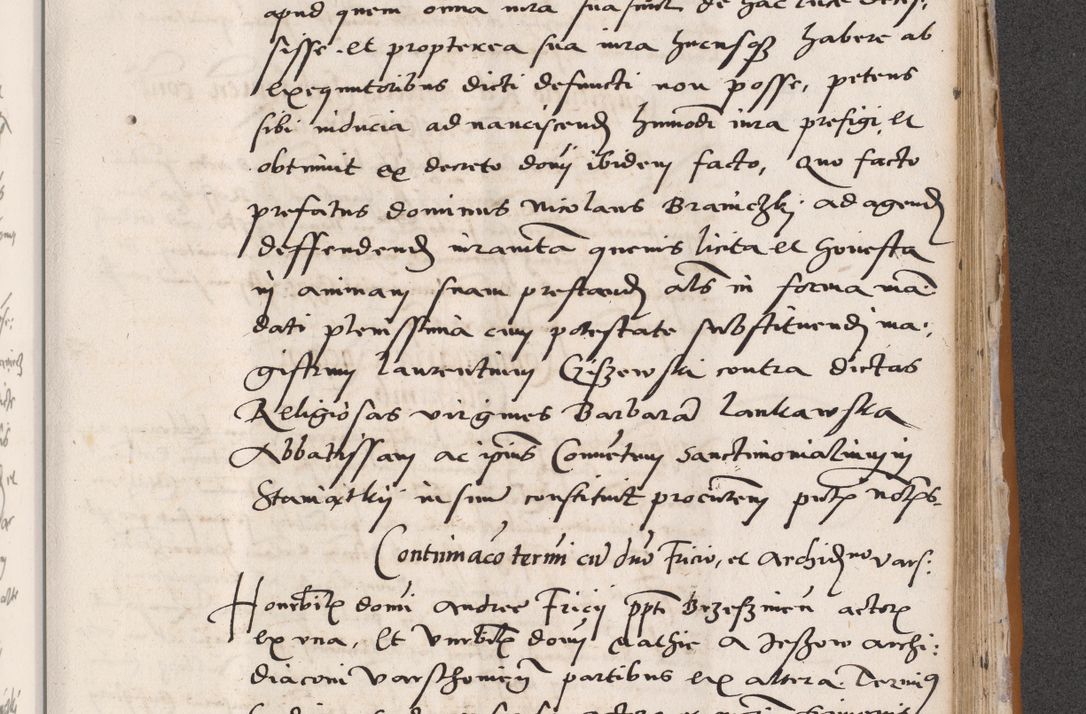 apud quem omnia iura sua sunt de hac luce deces:
sisse. et propterea sua iura hucusq₃ habere ab
exequutoribus dicti defuncti non posse, petens
sibi inducia ad nanciscend huiusmodi iura prefigi, et
obtinuit ex decreto domi ibidem facto, Quo facto
prefatus dominus Nicolaus Braniczkj ad agend
deffendend iuramta quenis licita et honesta
in animam suam prestand als in forma man
dati plenissima cum potestate substituendi ma:
gistrum Laurentium Czissewski contra dictas
Religiosas virgines Barbara Lankawska
Abbatissam ac ipius Conuetum Sanctimonialium in
Staniątkij in sim constituit procutem pntx notxs.
Contumaco termi cu dno Fricio, et Archidno vars:
Honrbilx domi Andree Fricij ppti Brzeszinen actorx
ex vna, Et Vnrbilx domi Mathie a Jeszow archi:
diaconi Varschouien partibus ex altera. Termi9